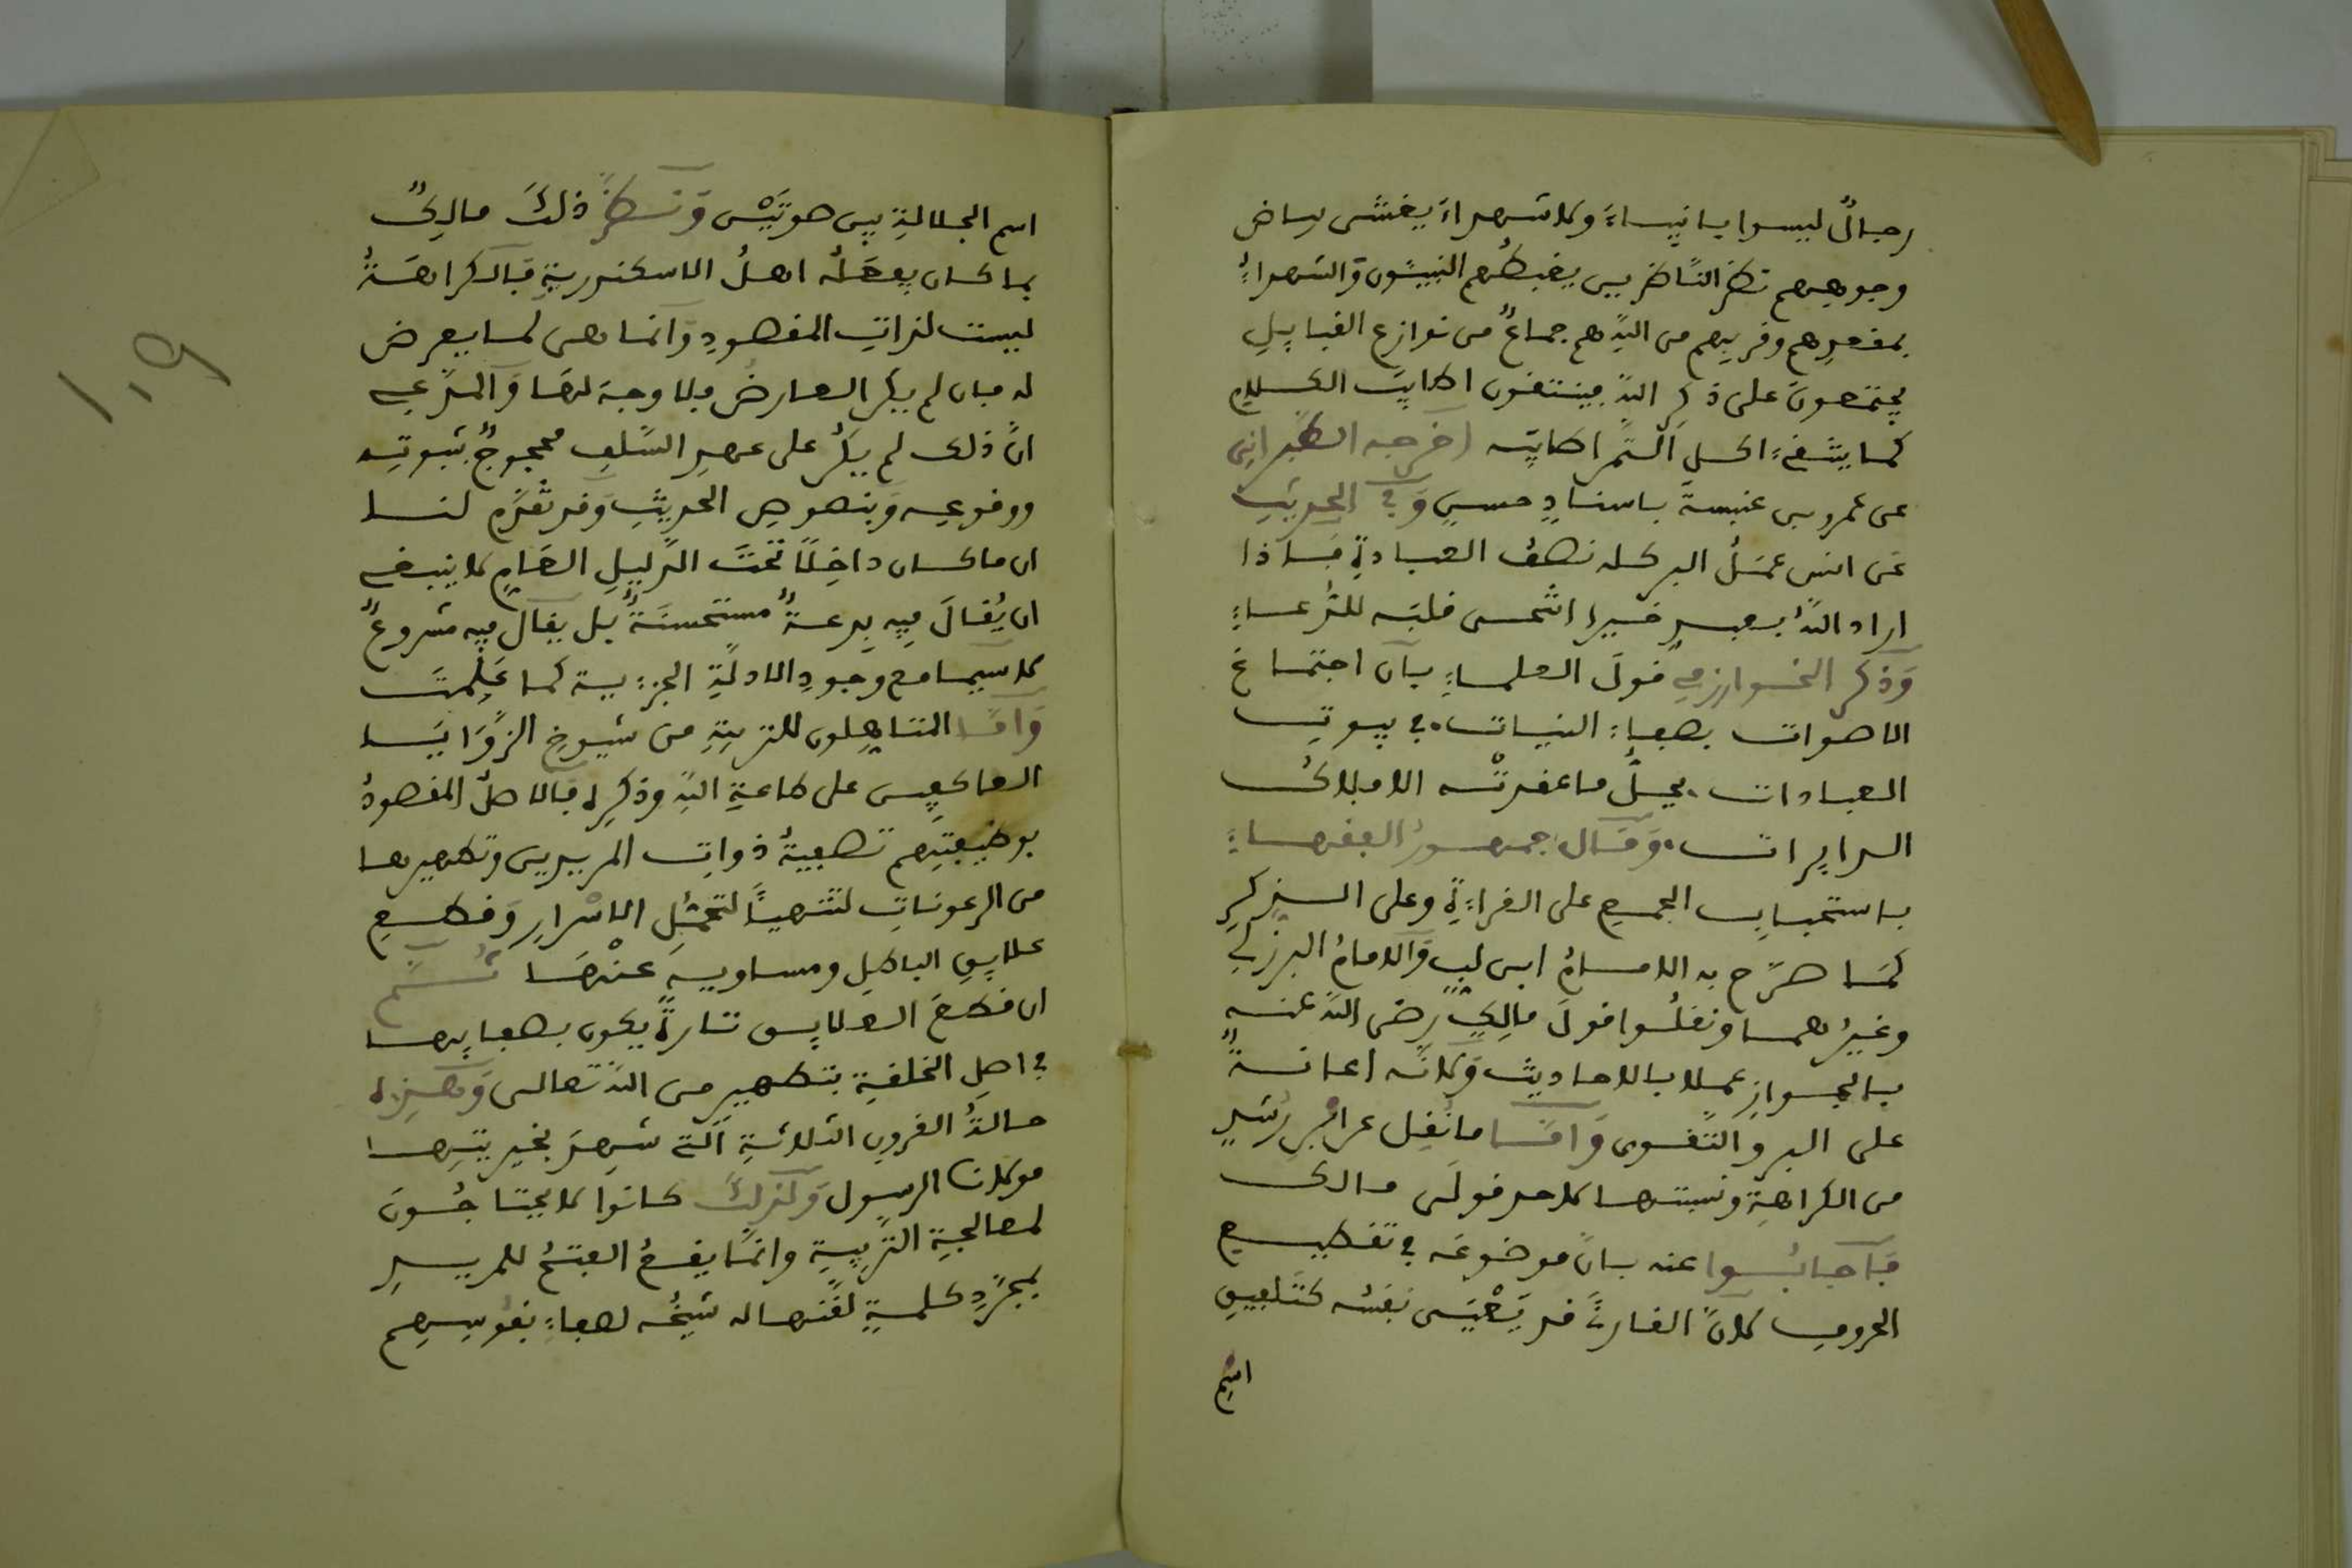 رجالٌ ليسوا بانبياءَ ولا شهداءَ يغشى بياض
وجوههم نظر الناظرين يغبطُهم النبيئون والشهداءُ
بمقعدِهم وقربِهم من اللّه هم جماعٌ من نوازع القبايلِ
يجتمعونَ على ذكرِ اللّه فينتقون اطايبَ الكلام
كما ينتقي ءاكل التمر اطايبه اخرجه الطبراني
عن عمرو بن عنبسة باسنادٍ حسنٍ وفي الحديث
عن انس عملُ البر كله نصف العبادةِ فاذا
اراد اللّه بعبدٍ خيرا انتحى قلبَه للدُّعاءِ
وذكر الخوارزمي قولَ العلماءِ بأن اجتماع
الاصوات بصفاءِ النيات. في بيوت
العبادات. يحلُّ ما عقدتْه الافلاك
الدايرات. وقال جمهورُ الفقهاءِ
باستحباب الجمعِ على القراءةِ وعلى الذكرِ
كما صرّح به الامامُ ابن لبٍ والامامُ البرزلي
وغيرُهما ونقلُوا قولَ مالِكٍ رضي اللّه عنه
بالجوازِ عملا بالاحاديث ولانّه اعانةٌ
على البر والتَّقوى واما ما نُقِل عن ابْنِ رُشدٍ
من الكراهةِ ونسبتها لاحد قولَى مالك
فاجابُوا عنه بانّ موضوعَه في تقطيع
الحروفِ لانّ القارئَ قد يَحْبَس نفسُه كتلفيقِ
اسْم
اسم الجلالةِ بين صوتَيْن ونظرُ ذلكَ مالِكٌ
بما كان يفعَلُه اهلُ الاسكندريةِ فالكراهَةُ
ليست لذاتِ المقصودِ وانما هى لما يعرض
له فان لم يكن العارضُ فلا وجهَ لها والمدّعي
انَّ ذلك لم يكُن على عهدِ السَّلفِ محجوجٌ بثبوتِه
ووقوعِه وبنصوصِ الحديثِ وقد تقدَّم لنا
ان ما كان داخِلًا تحتَ الدّليلِ العَامِ لا ينبغي
ان يُقالَ فيه بِدعةٌ مستحسنَةٌ بل يقال فيه مشروعٌ
لا سيما مع وجودِ الادلّةِ الجزءية كما عَلِمتَ
وامّا المتاهِلون للتربيةِ من شيوخِ الزَّوَايَا
العاكفِين على طاعةِ اللّه وذكرِه فالاصلُ المقصودُ
بوظيفتِهم تصفيةُ ذواتِ المريدين وتطهيرها
من الرعوناتِ لتتهيأَ لتحمُّلِ الاسْرارِ وقطعِ
علايقِ الباطلِ ومساويه عنْهَا ثُمَّ
ان قطعَ العلايق تارةً يكون بصفايها
في اصلِ الخلقةِ بتطهير من اللّه تعالى وهذِه
حالةُ القرونِ الثلاثةِ التي شَهِدَ بخيريتِها
مولانا الرسول ولذلكَ كانُوا لا يحتاجُون
لمعالجةِ التّربيةِ وانمّا يقعُ الفتحُ للمريدِ
بمجرّدِ كلمةٍ لقَّنها له شيخُه لصفاءِ نفوسِهِم
١٠٩